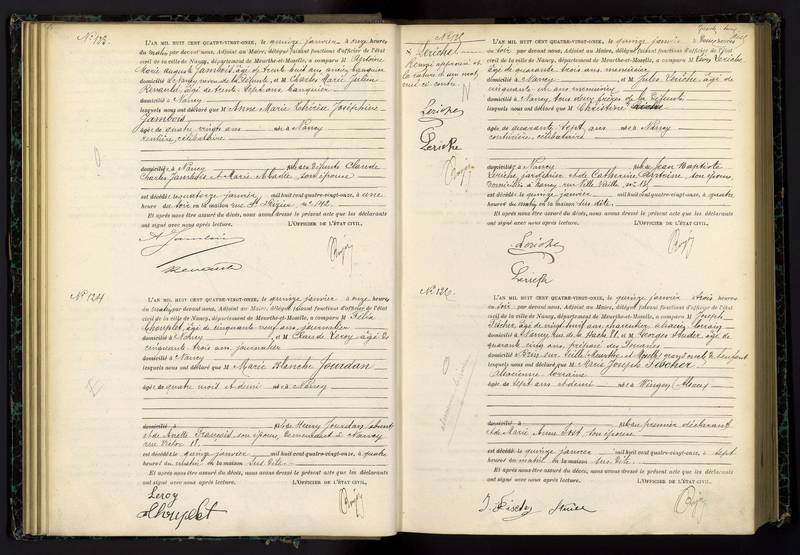 No 123.
L'AN MIL HUIT CENT QUATRE-VINGT-ONZE, le quinze janvier à onze heures
du matin par devant nous, Adjoint au Maire, délégué faisant fonctions d'officier de l'état
civil de la ville de Nancy, département de Meurthe-et-Moselle, a comparu M Antoine
Marie Auguste Jambois, âgé de trente huit ans, ancien banquier
domicilié à Nancy, de la défunte, et M Charles Marie Julien
Renauld, âgé de trente sept ans, banquier
domicilié à Nancy
lesquels nous ont déclaré que M Anne Marie Thérèse Joséphine
Jambois
âgée de quatre vingts ans née à Nancy
rentière, célibataire
domiciliée à Nancy fille des défunts Claude
Charles Jambois et Marie Abadie, son épouse
est décédée quatorze janvier mil huit cent quatre-vingt-onze, à une
heure du soir en la maison rue St Dizier, no 142.
Et après nous être assuré du décès, nous avons dressé le présent acte que les déclarants
ont signé avec nous après lecture. L'OFFICIER DE L'ÉTAT CIVIL,
A Jambois
Renauld
No 124
L'AN MIL HUIT CENT QUATRE-VINGT-ONZE, le quinze janvier à onze heures
du matin par devant nous, Adjoint au Maire, délégué faisant fonctions d'officier de l'état
civil de la ville de Nancy, département de Meurthe-et-Moselle, a comparu M Félix
Chouplet, âgé de cinquante neuf ans, journalier
domicilié à Nancy et M Claude Leroy âgé de
cinquante trois ans journalier
domicilié à Nancy
lesquels nous ont déclaré que M Marie Blanche Jourdan
âgée de quatre mois et demi née à Nancy
domicilié à fille de Henry Jourdan, absent
et de Anette François, son épouse, demeurant à Nancy
rue 11,
est décédée le quinze janvier mil huit cent quatre-vingt-onze, à quatre
heures du matin en la maison sus dite.
Et après nous être assuré du décès, nous avons dressé le présent acte que les déclarants
ont signé avec nous après lecture. L'OFFICIER DE L'ÉTAT CIVIL,
Leroy
Chouplet
No 125
L'AN MIL HUIT CENT QUATRE-VINGT-ONZE, le quinze janvier à trois heures
du soir par devant nous, Adjoint au Maire, délégué faisant fonctions d'officier de l'état
civil de la ville de Nancy, département de Meurthe-et-Moselle, a comparu M Leriche
âgé de quarante trois ans, menuisier
domicilié à Nancy et M Jules Leriche âgé de
cinquante et un ans menuisier
domicilié à Nancy, tous deux frères de la défunte
lesquels nous ont déclaré que M Christine
âgée de quarante sept ans née à Nancy
couturière, célibataire
domiciliée à Nancy fille de Jean Baptiste
Leriche, jardinier et de Catherine Antoine, son épouse,
domiciliés à Nancy, rue
est décédée quinze janvier mil huit cent quatre-vingt-onze, à quatre
heures du matin en la maison sus dite.
Et après nous être assuré du décès, nous avons dressé le présent acte que les déclarants
ont signé avec nous après lecture. L'OFFICIER DE L'ÉTAT CIVIL,
Leriche
Leriche
Leriche
Leriche
No 126
L'AN MIL HUIT CENT QUATRE-VINGT-ONZE, le quinze janvier à trois heures
du soir par devant nous, Adjoint au Maire, délégué faisant fonctions d'officier de l'état
civil de la ville de Nancy, département de Meurthe-et-Moselle, a comparu M Joseph
Fischer, âgé de vingt neuf ans, charretier, alsacien lorrain
domicilié à Nancy, rue de la Hache, et M Georges âgé de
quarante cinq ans, préposé des Douanes
lesquels nous ont déclaré que M Marie Joseph Fischer
Alsacienne Lorraine
âgée de sept ans et demi née à Wingen (Alsace)
domicilié à fille du premier déclarant
et de Marie Anne Jost, son épouse
est décédée le quinze janvier mil huit cent quatre-vingt-onze, à sept
heures du matin en la maison sus dite.
Et après nous être assuré du décès, nous avons dressé le présent acte que les déclarants
ont signé avec nous après lecture. L'OFFICIER DE L'ÉTAT CIVIL,
J. Fischer